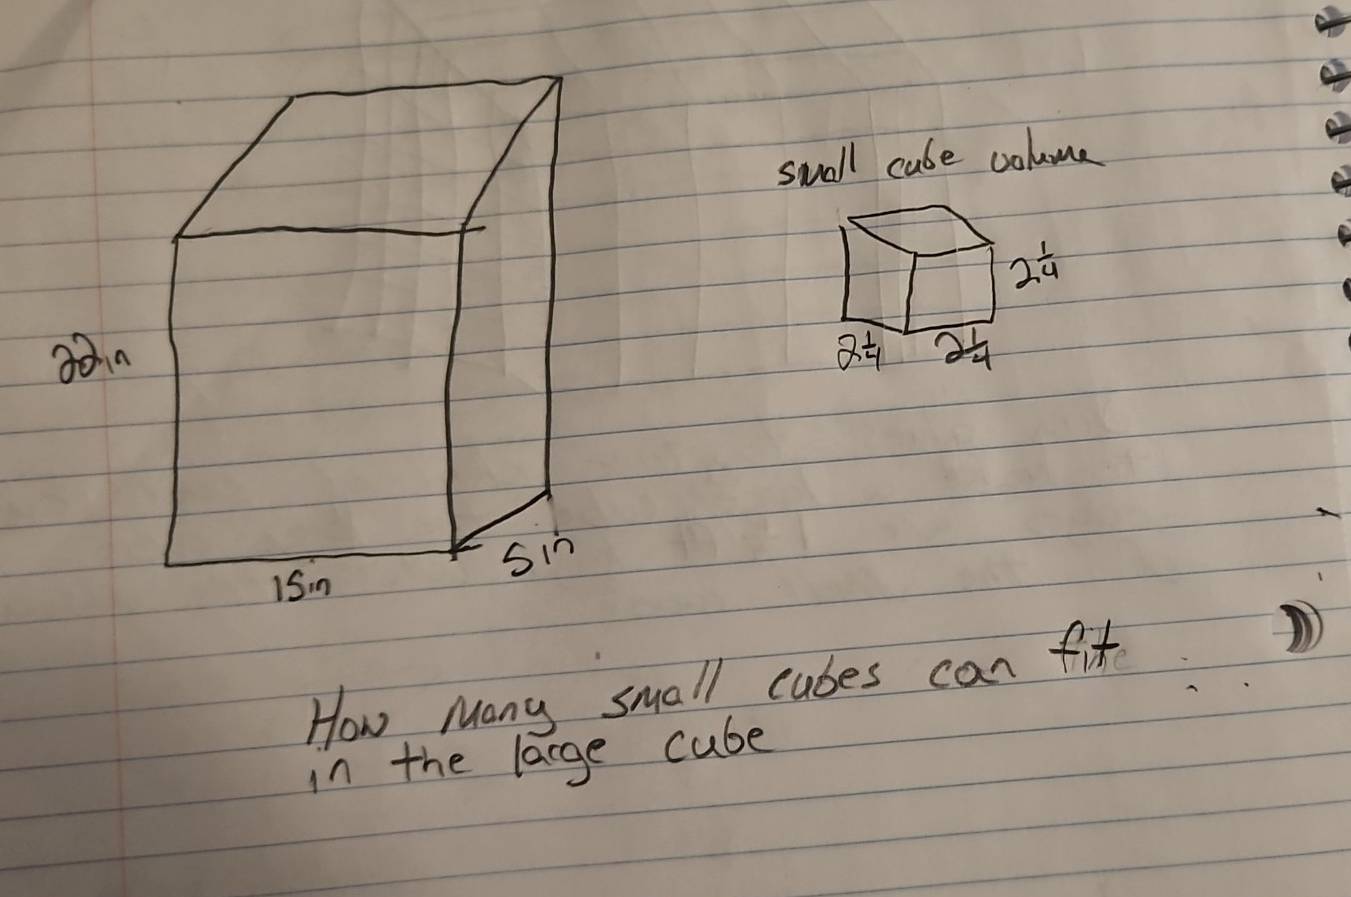 small cube volume
2 1/4
22in
2 1/4 2 1/4
15in
5in
How Many small cubes can fit
in the large cube